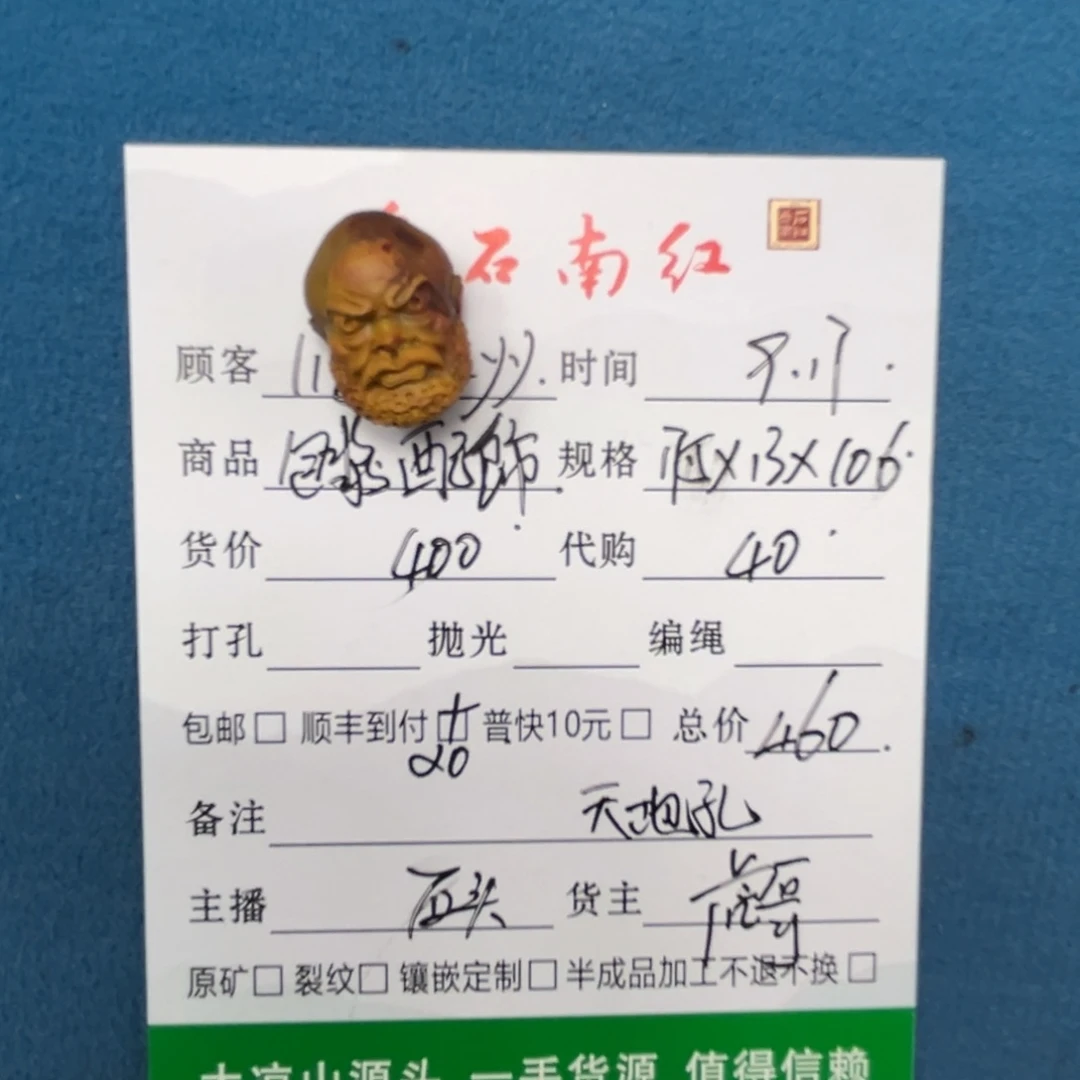 石南红
顾客 时间 9.17.
商品 包浆配饰. 规格 ×13×106
货价 400 代购 40
打孔 抛光 编绳
包邮□ 顺丰到付□ 普快10元□ 总价 460.
20
备注 天地孔
主播 石头 货主
原矿□ 裂纹□ 镶嵌定制□ 半成品加工不退不换□
大凉山源头 一手货源 值得信赖